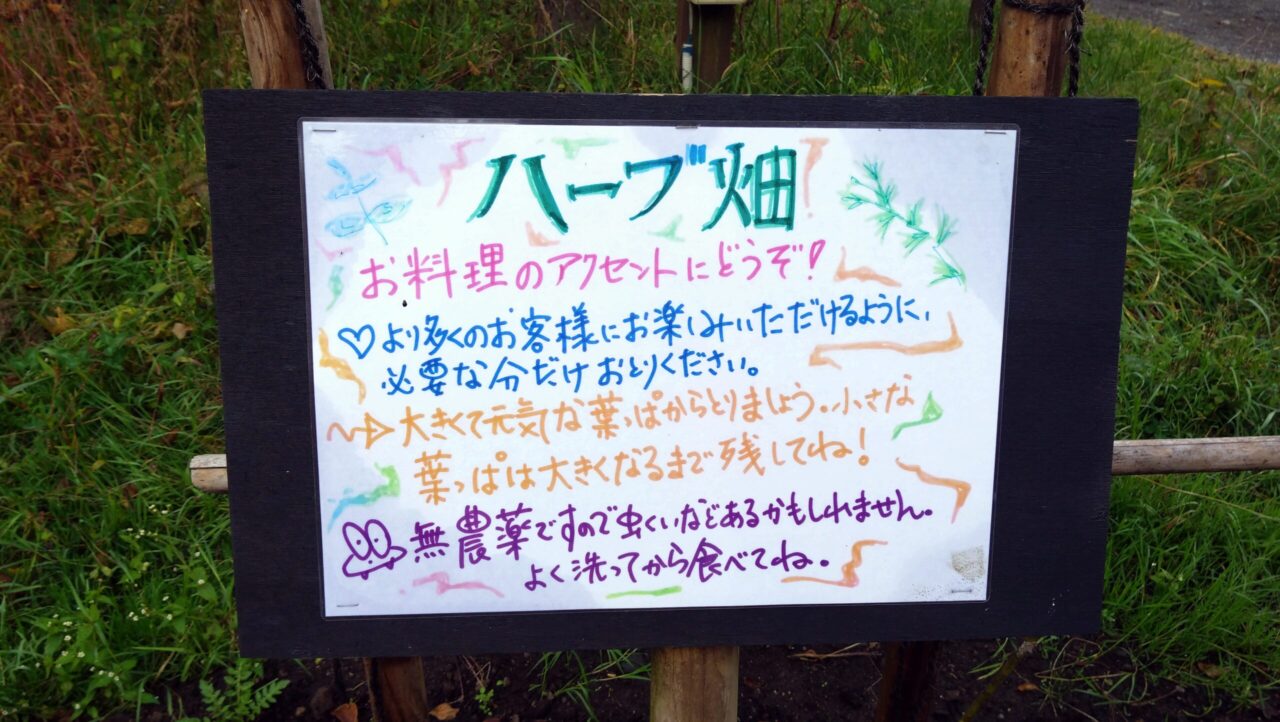 ハーブ畑
お料理のアクセントにどうぞ!
♡より多くのお客様にお楽しみいただけるように、
必要な分だけおとりください。
大きくて元気な葉っぱからとりましょう。小さな
葉っぱは大きくなるまで残してね!
無農薬ですので虫くいなどあるかもしれません。
よく洗ってから食べてね。